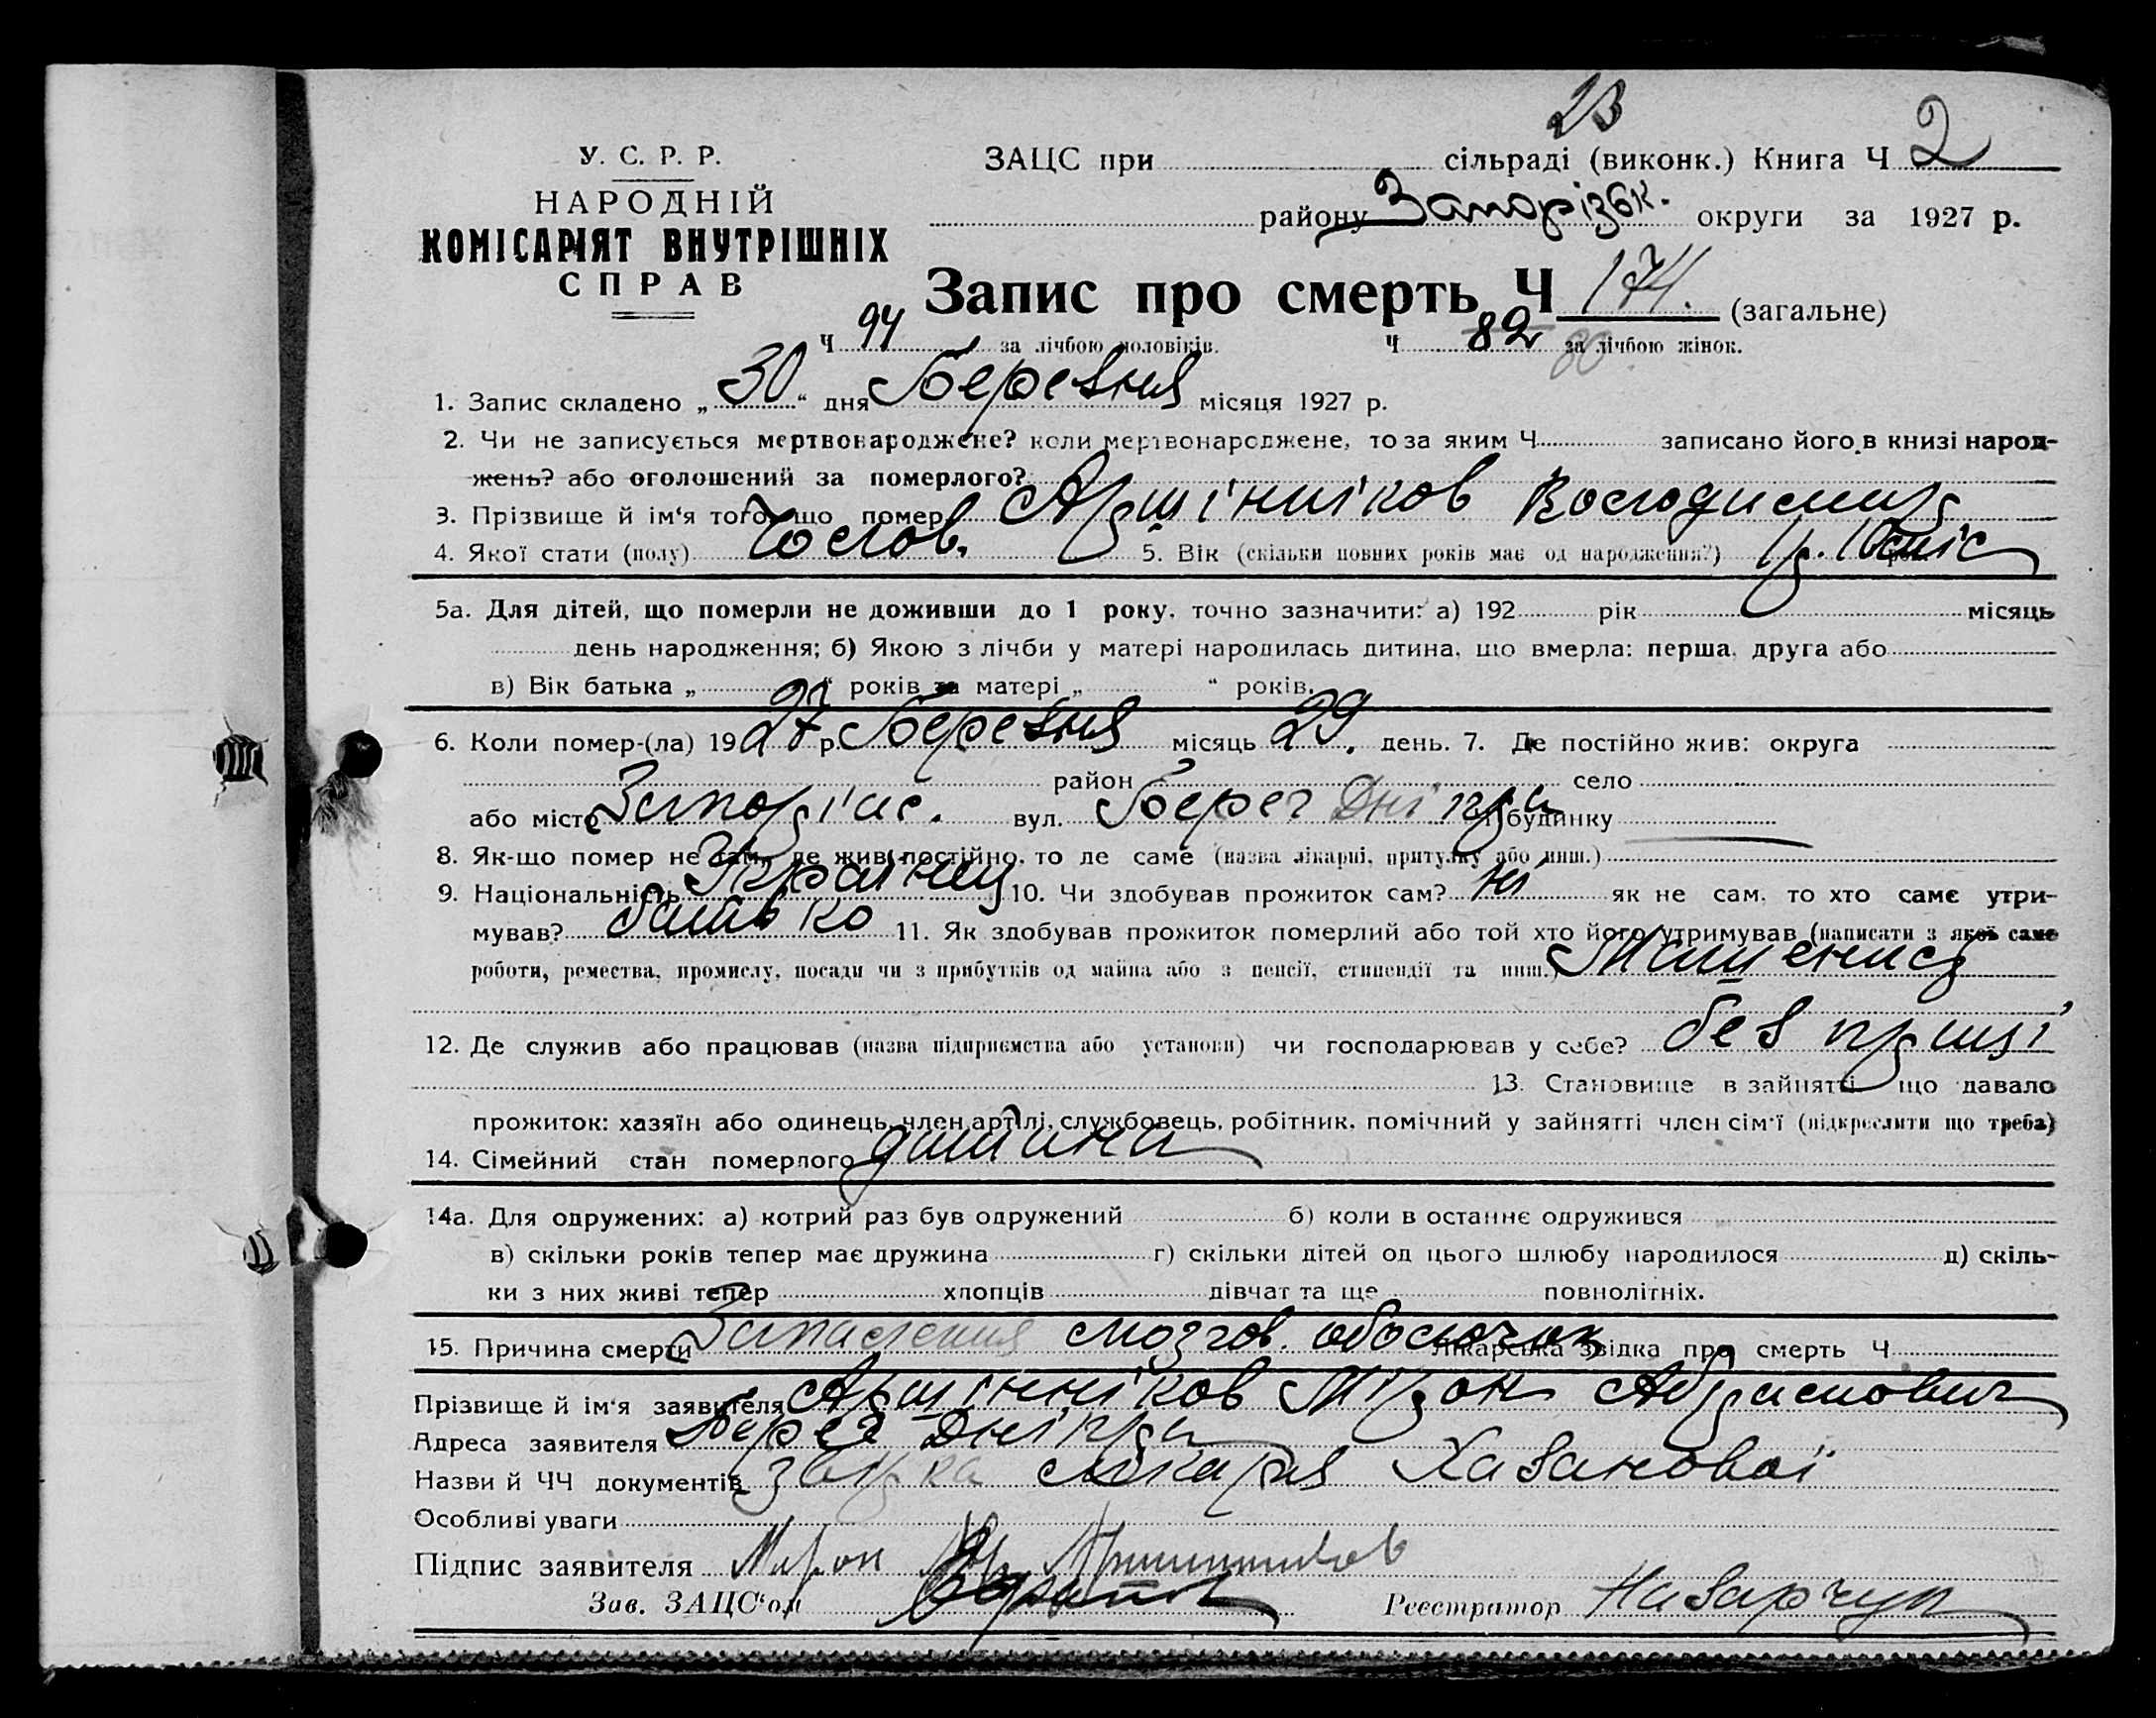 23
У. С. Р. Р.
НАРОДНІЙ
КОМІСАРІЯТ ВНУТРІШНІХ
СПРАВ
ЗАЦС при сільраді (виконк.) Книга Ч 2
району Запорізьк. округи за 1927 р.
Запис про смерть Ч 174. (загальне)
Ч 94 за лічбою чоловіків. Ч 82 за лічбою жінок.
80
1. Запис складено „ 30 “ дня Березня місяця 1927 р.
2. Чи не записується мертвонароджене? коли мертвонароджене, то за яким Ч записано його в книзі народ-
жень? або оголошений за померлого?
3. Прізвище й ім‘я того, що помер Аршінніков Володимир
4. Якої стати (полу) Чолов. 5. Вік (скільки повних років має од народження?) 1 р. 10 міс
5а. Для дітей, що померли не доживши до 1 року, точно зазначити: а) 192 рік місяць
день народження; б) Якою з лічби у матері народилась дитина, що вмерла: перша, друга або
в) Вік батька „ “ років та матері „ “ років.
6. Коли помер-(ла) 1927 р. Березня місяць 29. день. 7. Де постійно жив: округа
район село
або місто Запоріжс. вул. Берег Дніпра будинку
8. Як-що помер не там, де жив постійно, то де саме (назва лікарні, притулку або инш.)
9. Національність Українец 10. Чи здобував прожиток сам? ні як не сам, то хто саме утри-
мував? батько 11. Як здобував прожиток померлий або той хто його утримував (написати з якої саме
роботи, ремества, промислу, посади чи з прибутків од майна або з пенсії, стипендії та инш.)
12. Де служив або працював (назва підприємства або установи) чи господарював у себе? без праці
13. Становище в зайнятті що давало
прожиток: хазяїн або одинець, член артілі, службовець, робітник, помічний у зайнятті член сім‘ї (підкреслити що треба)
14. Сімейний стан померлого дитина
14а. Для одружених: а) котрий раз був одружений б) коли в останнє одружився
в) скільки років тепер має дружина г) скільки дітей од цього шлюбу народилося д) скіль-
ки з них живі тепер хлопців дівчат та ще повнолітніх.
15. Причина смерти Запалення мозгов. оболочок Лікарська звідка про смерть Ч
Прізвище й ім‘я заявителя Аршінніков Мірон Абрамович
Адреса заявителя Берег Дніпра
Назви й ЧЧ документів лікаря Хазанової
Особливі уваги
Підпис заявителя Мирон Аршинников
Зав. ЗАЦС‘ом
Реєстратор Назарчук